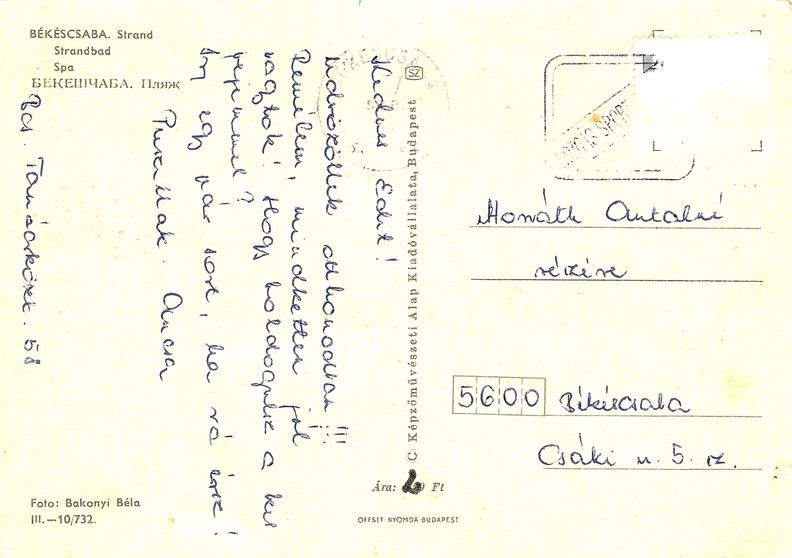 BÉKÉSCSABA. Strand
Strandbad
Spa
БЕКЕШЧАБА. Пляж
Kedves Edit!
Üdvözöllek otthonodban!!!
Remélem, mindketten jól
vagytok! Hogy boldogulsz a kis
Írj egy pár sort, ha rá érsz!
Puszillak. Ancsa
Bcs. Tanácsközt. 58
SZ
C Képzőművészeti Alap Kiadóvállalata, Budapest
Horváth Antalné
részére
5600 Békéscsaba
Csáki u. 5. sz.
Ára: Ft
Foto: Bakonyi Béla
III.—10/732.
OFFSET-NYOMDA BUDAPEST